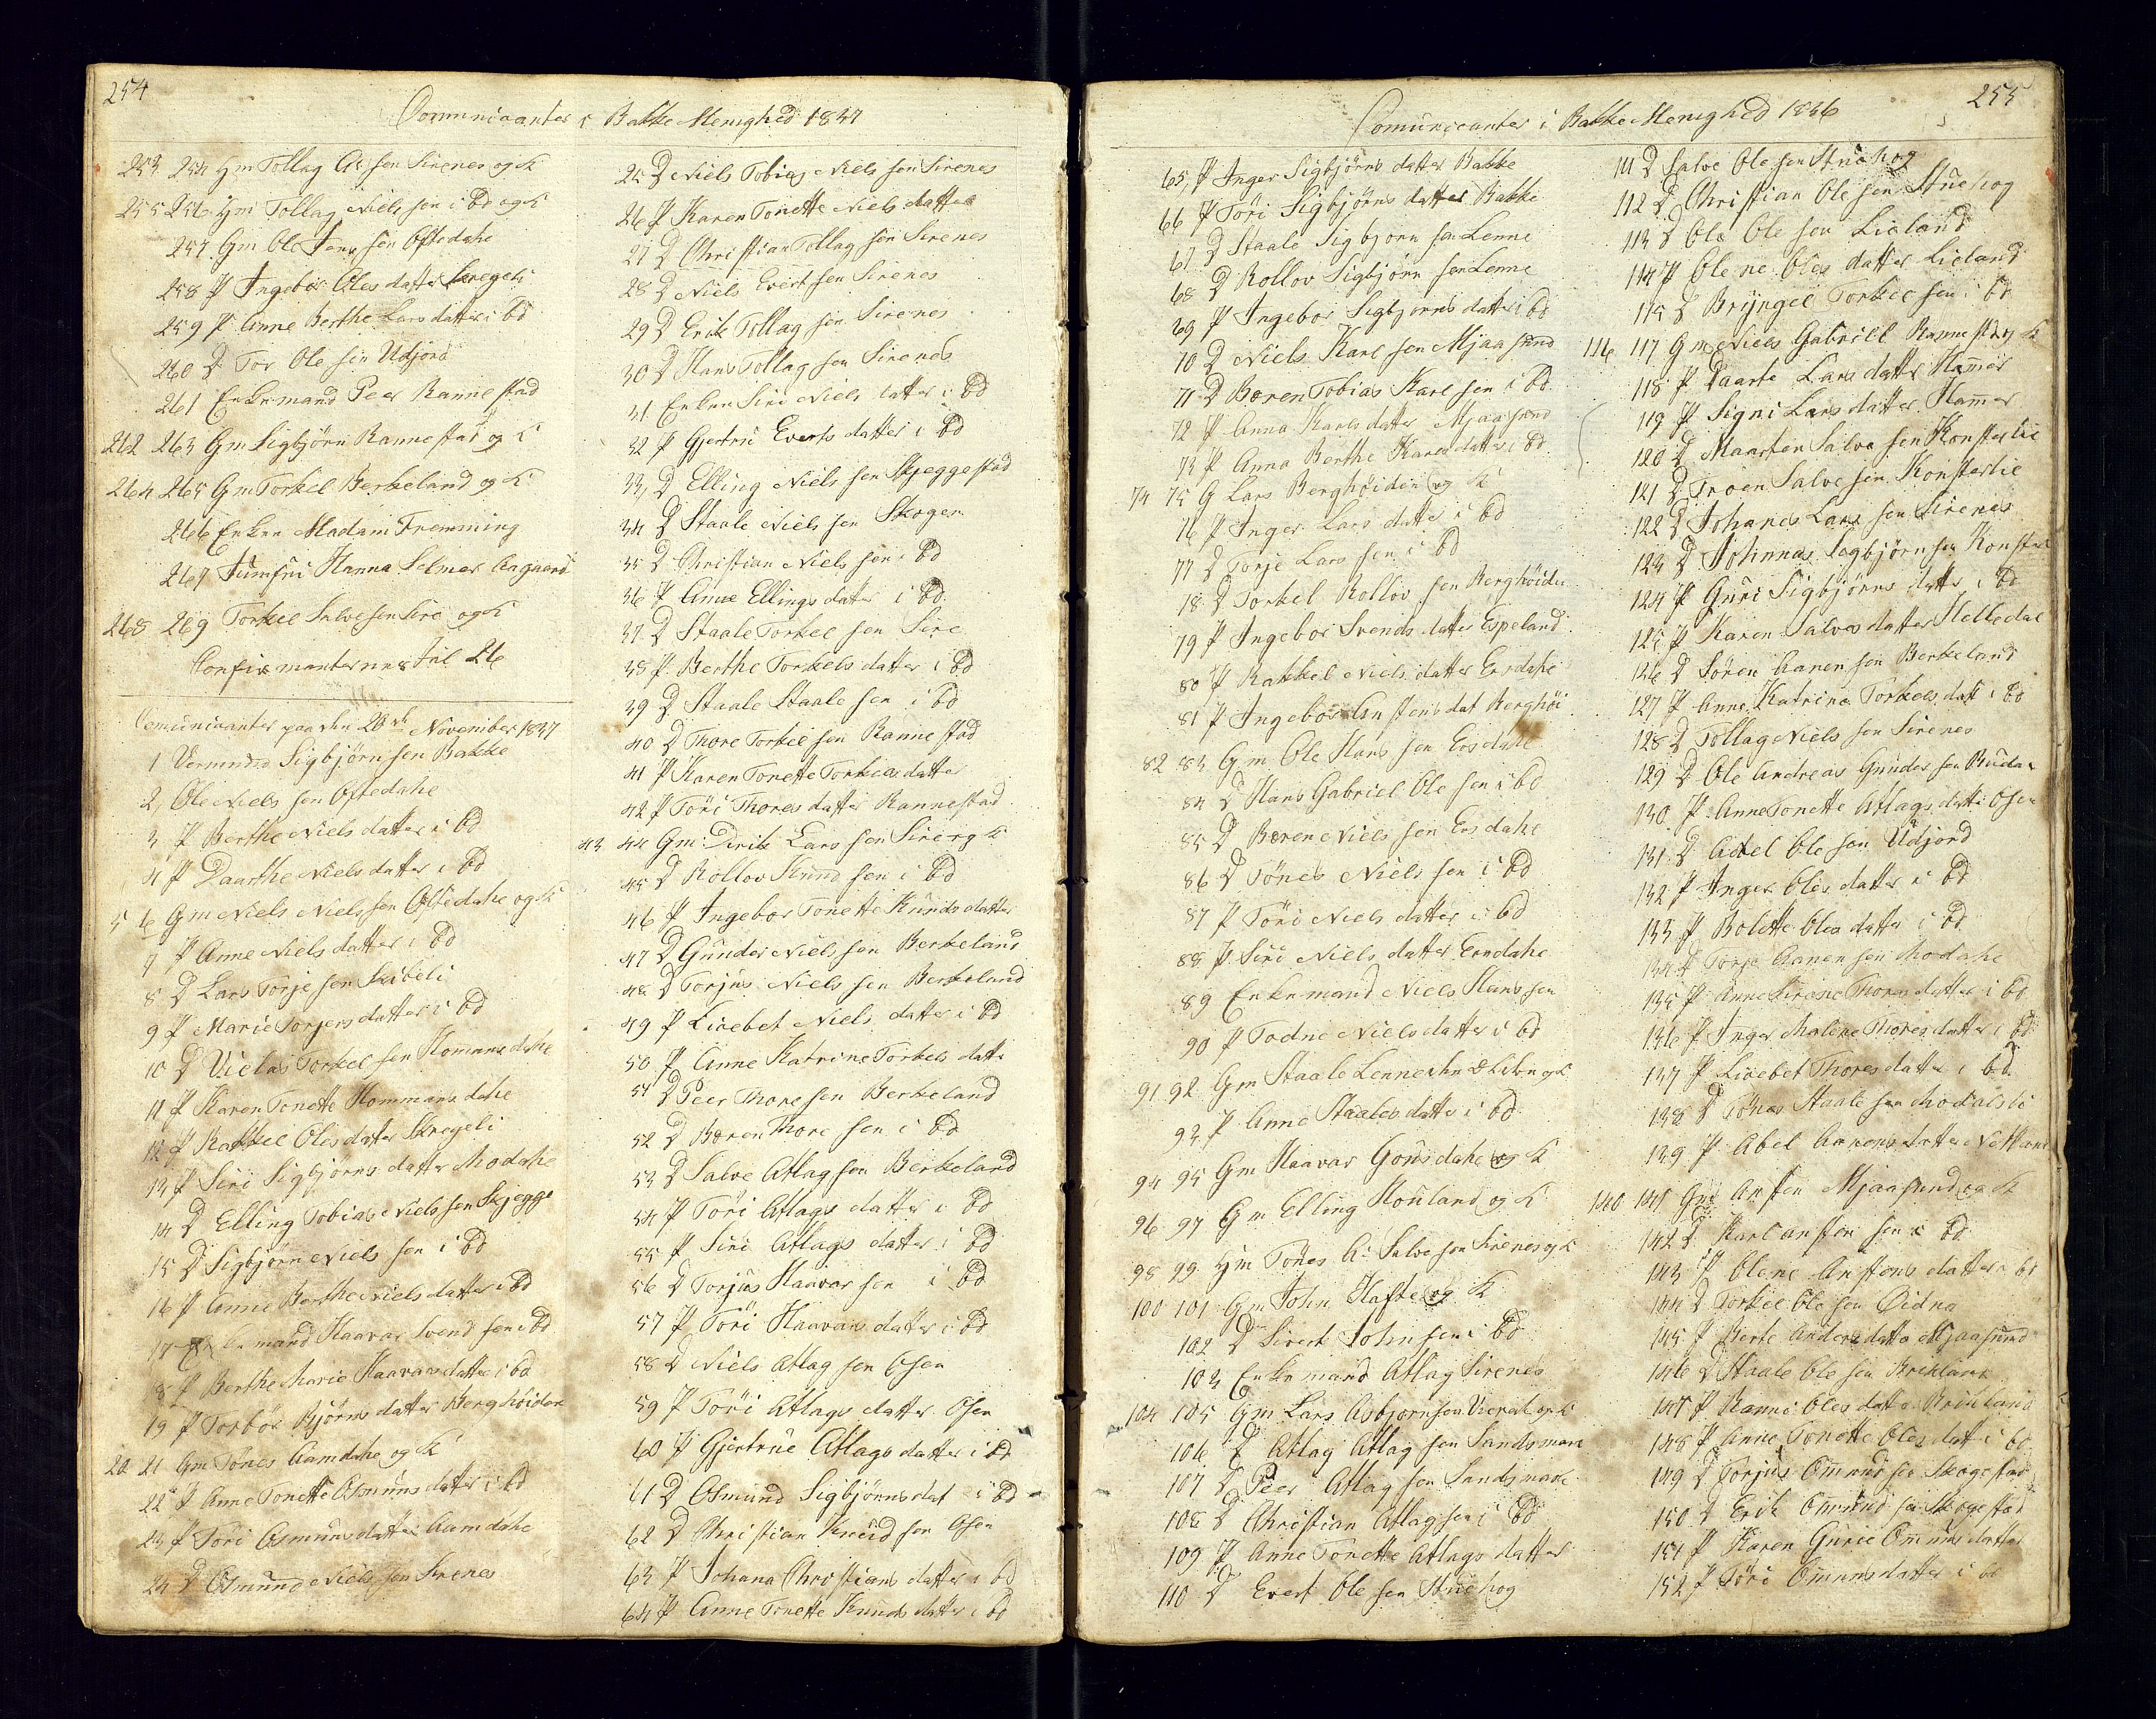 254
Communicanter i Bakke Menighed 1837
253 254 Hm Tollag As sen Sirenes og K
255 256 Hm Tollag Niels sen i bd og K
257 Gm Ole Jens sen Oftedahe
258 P Ingebor Oles datter Skregeli
259 P Anne Berthe Lars datter i bd
260 D Tor Ole sen Udjord
261 Enkemand Peer Rannestad
262 263 Gm Sigbjørn Rannestad og K
264 265 Gm Torkel Berkeland og K
266 Enken Madam Fremming
267 Jumfru Hanna Selmer Aagaard
268 269 Torkel Salvesen Sire og K
Confirmanternes Tal 26
Comunicanter paa den 28de November 1837
1 Vermund Sigbjørn sen Bakke
2, Ole Niels sen Oftedahe
3 P Berthe Niels datter i bd
4 P Daarthe Niels datter i bd
5 6 Gm Niels Niels sen Oftedahe og K
7 P Anne Niels datter i bd
8 D Lars Torje sen Skibeli
9 P Marie Torjers datter i bd
10 D Vielas Torkel sen Hommans dahe
11 P Karen Tonette Hommans dahe
12 P Rakkel Oles datter Skregeli
13 P Siri Sigbjørns datter Modahe
14 D Elling Tobias Niels sen Skjegge
15 D Sigbjørn Niels sen i bd
16 P Anne Berthe Niels datter i bd
17 Enkemand Haavar Svend sen i bd
18 P Berthe Marie Haavars datter i bd
19 P Torbor Bjørns datter Berghøiden
20 21 Gm Tønes Aamdahe og K
22 P Anne Tonette Osmuns datter i bd
23 P Tori Osmuns datter Aamdahe
24 D Osmund Niels sen Sirenes
25 D Niels Tobias Niels sen Sirenes
26 P Karen Tonette Niels datter
27 D Christian Tollag sen Sirenes
28 D Niels Evert sen Sirenes
29 D Erik Tollag sen Sirenes
30 D Hans Tollag sen Sirenes
31 Enken Siri Niels datter i bd
32 P Gjertru Everts datter i bd
33, D Elling Niels sen Skjeggestad
34 D Staale Niels sen Skogen
35 D Christian Niels sen i bd
36 P Anne Ellings datter i bd
37 D Staale Torkel sen Sire
38 P Berthe Torkels datter i bd
39 D Staale Staale sen i bd
40 D Thore Torkel sen Rannestad
41 P Karen Tonette Torkels datter
42 P Tori Thores datter Rannestad
43 44 Gm Dirik Lars sen Sire og K
45 D Rollov Knud sen i bd
46 P Ingebor Tonette Knuds datter
47 D Gunder Niels sen Berkeland
48 D Torjus Niels sen Berkeland
49 P Lisebet Niels datter i bd
50 P Anne Katrine Torkels datte
51 D Peer Thore sen Berkeland
52 D Børen Thore sen i bd
53 D Salve Atlag sen Berkeland
54 P Tori Atlags datter i bd
55 P Siri Atlags datter i bd
56 D Torjus Haavar sen i bd
57 P Tori Haavars datter i bd
58 D Niels Atlag sen Osen
59 P Tori Atlags datter Osen
60 P Gjertrue Atlags datter i bd
61 D Osmund Sigbjørns dat i bd
62 D Christian Knud sen Osen
63 P Johana Christians datter i bd
64 P Anne Tonette Knuds datter i bd
255
Comunicanter i Bakke Menighed 1836
65, P Inger Sigbjørns datter Bakke
66 P Tori Sigbjørns datter Bakke
67 D Staale Sigbjørn sen Lenne
68 D Rollov Sigbjørn sen Lenne
69 P Ingebor Sigbjørns datter i bd
70 D Niels Karl sen Mjaasund
71 D Børen Tobias Karl sen i bd
72 P Anna Karls datter Mjaasund
73 P Anna Berthe Karls datter i bd
74 75 G Lars Berghøiden og K
76 P Inger Lars datter i bd
77 D Torje Lars sen i bd
78 D Torkel Rollov sen Berghøiden
79 P Ingebor Svends datter Espeland
80 P Rakkel Niels datter Ersdahe
81 P Ingebor Anstens dat Berghøi
82 83 Gm Ole Hans sen Eesdahe
84 D Hans Gabriel Ole sen i bd
85 D Børen Niels sen Ersdahe
86 D Tønes Niels sen i bd
87 P Tori Niels datter i bd
88 P Siri Niels datter Ersdahe
89 Enkemand Niels Hans sen
90 P Todne Niels datter i bd
91 92 Gm Staale Lenne den Ældre og K
93 P Anne Staales datter i bd
94 95 Gm Haavar Gousdahe og K
96 97 Gm Elling Houland og K
98 99 Hm Tønes As Salve sen Sirenes og K
100 101 Gm John Hafte og K
102 D Sivert John sen i bd
103 Enkemand Atlag Sirenes
104 105 Gm Lars Asbjørnsen Virak og K
106 D Atlag Atlag sen Sandsmark
107 D Peer Atlag sen Sandsmark
108 D Christian Atlag sen i bd
109 P Anne Tonette Atlags datter
110 D Evert Ole sen Stuehog
111 D Salve Ole sen Stuehog
112 D Christian Ole sen Stuehog
113 D Ole Ole sen Lieland
114 P Olene Oles datter Lieland
115 D Bryngel Torkel sen i bd
116 117 Gm Niels Gabriel Rannestad og K
118 P Daarte Lars datter Hamer
119 P Signi Lars datter Hamer
120 D Maarten Salve sen Konsterlie
121 D Troen Salve sen Konsterlie
122 D Johanes Lars sen Sirenes
123 D Johannes Sigbjørn sen Konster
124 P Guri Sigbjørns datter i bd
125 P Karen Salves datter Helledal
126 D Søren Aanen sen Berkeland
127 P Anne Katrine Torkels datt i bd
128 D Tollag Niels sen Sirenes
129 D Ole Andreas Gunder sen Rudla
130 P Anne Tonette Atlags datte Osen
131 D Axel Ole sen Udjord
132 P Inger Oles datter i bd
133 P Bolette Oles datter i bd
134 D Torje Aanen sen Modahe
135 P Anne Sirene Thores datter i bd
136 P Inger Malene Thores datter i bd
137 P Lisebet Thores datter i bd
138 D Tønes Staale sen Modalsli
139 P Abel Aanens datter Netland
140 141 Gm Ansten Mjaasund og K
142 D Karl Ansten sen i bd
143 P Olene Anstens datter i bd
144 D Torkel Ole sen Øidna
145 P Berte Anders datter Mjaasund
146 D Staale Ole sen Brikland
147 P Ranni Oles datter Brikland
148 P Anne Tonette Oles datt i bd
149 D Torjus Omund sen Skogestad
150 D Erik Omund sen Skogestad
151 P Karen Gurie Omuns datter
152 P Tori Omuns datter i bd